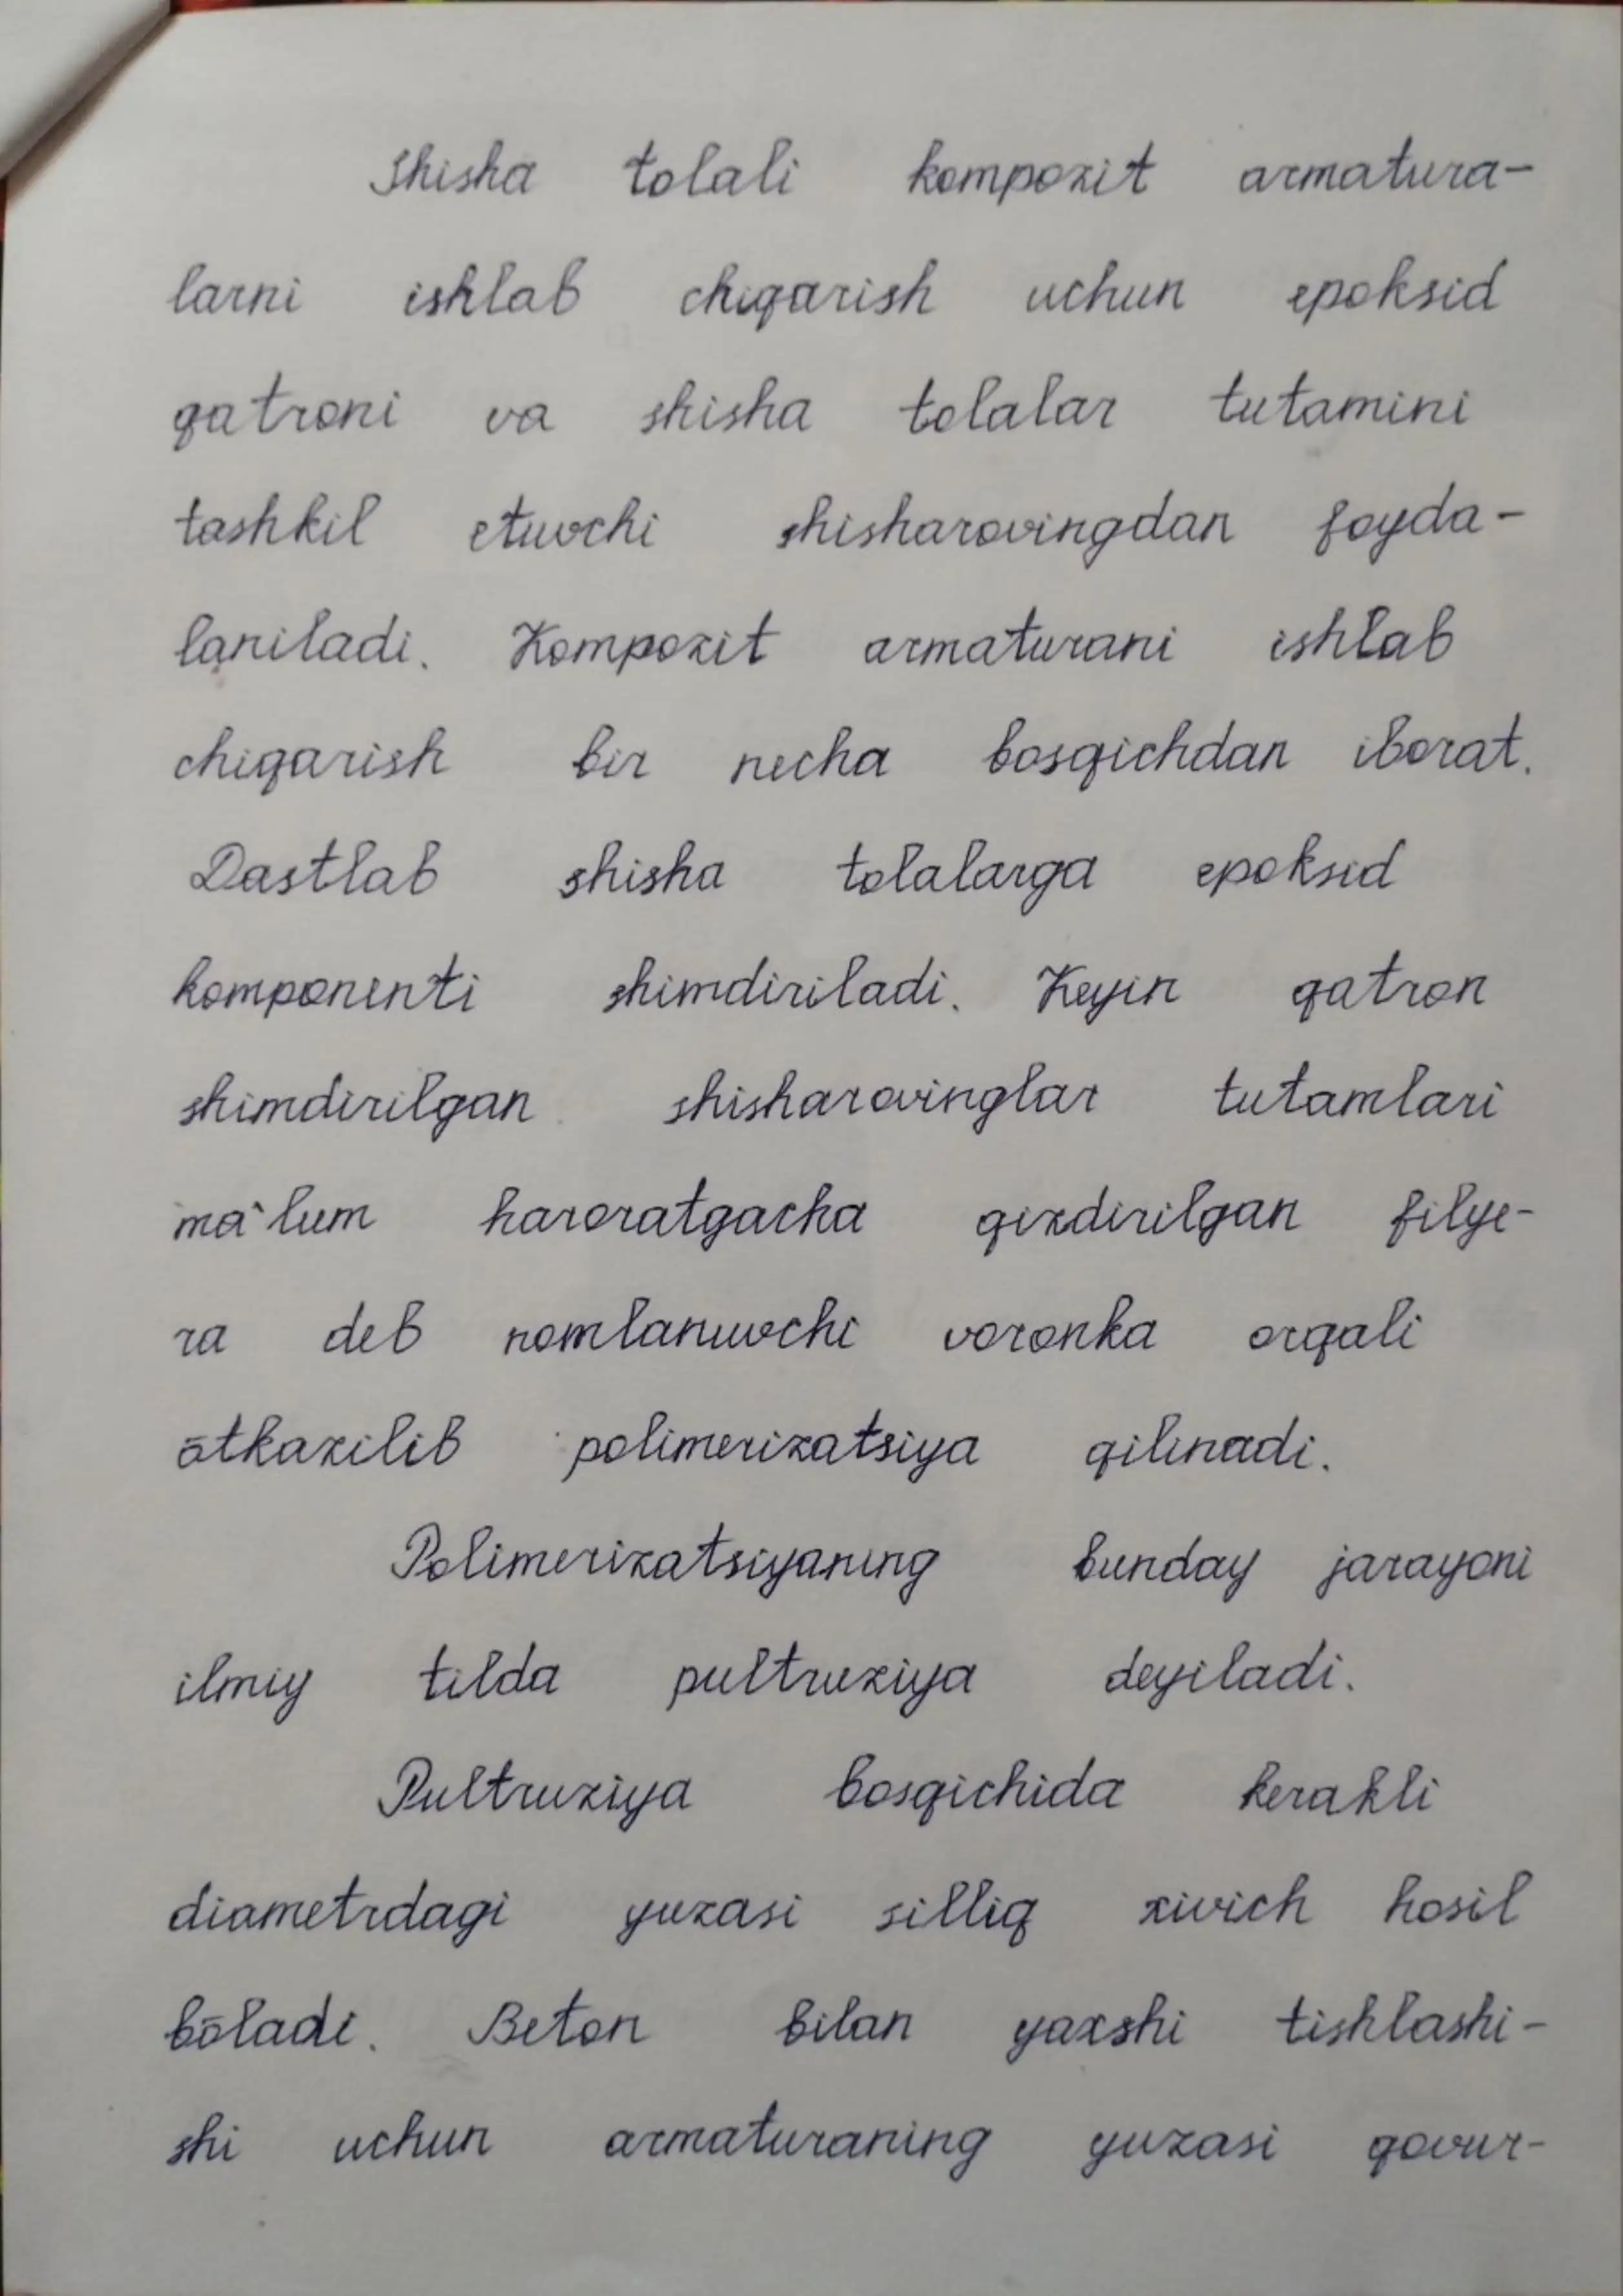 Shisha tolali kompozit armatura-
larni ishlab chiqarish uchun epoksid
qatroni va shisha tolalar tutamini
tashkil etuvchi shisharovingdan foyda-
laniladi. Kompozit armaturani ishlab
chiqarish bir necha bosqichdan iborat.
Dastlab shisha tolalarga epoksid
komponenti shimdiriladi. Keyin qatron
shimdirilgan shisharovinglar tutamlari
ma'lum haroratgacha qizdirilgan filye-
ra deb nomlanuvchi voronka orqali
ōtkazilib polimerizatsiya qilinadi.
Polimerizatsiyaning bunday jarayoni
ilmiy tilda pultruziya deyiladi.
Pultruziya bosqichida kerakli
diametrdagi yuzasi silliq xivich hosil
bōladi. Beton bilan yaxshi tishlashi-
shi uchun armaturaning yuzasi qovur-